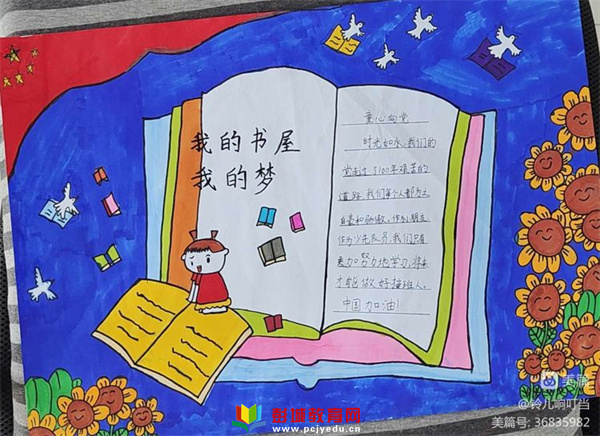 我的书屋
我的梦
童心向党
时光如水,我们的
党走过了100年艰苦的
道路,我们每个人都为之
自豪和骄傲。作为小朋友
作为少先队员,我们只有
更加努力地学习,将来
才能做好接班人。
中国加油!
彭城教育网
www.pcjyedu.cn
美篇
@铃儿响叮当
美篇号: 36835982